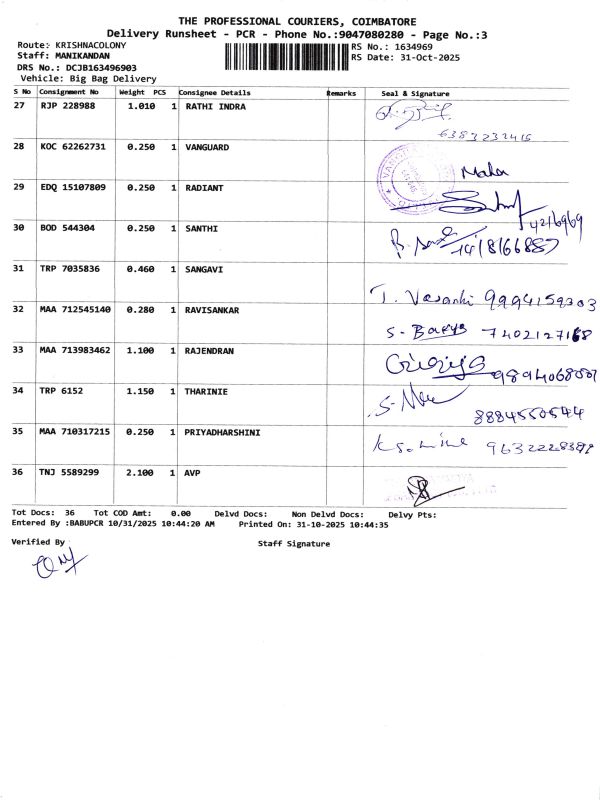 THE PROFESSIONAL COURIERS, COIMBATORE
Delivery Runsheet - PCR - Phone No.:9047080280 - Page No.:3
Route: KRISHNACOLONY
Staff: MANIKANDAN
DRS No.: DCJB163496903
Vehicle: Big Bag Delivery
RS No.: 1634969
RS Date: 31-Oct-2025
S No Consignment No Weight PCS Consignee Details Remarks Seal & Signature
27 RJP 228988 1.010 1 RATHI INDRA
6383232415
28 KOC 62262731 0.250 1 VANGUARD
Maha
29 EDQ 15107809 0.250 1 RADIANT
30 BOD 544304 0.250 1 SANTHI
31 TRP 7035836 0.460 1 SANGAVI
T. Vasanki 9994159303
32 MAA 712545140 0.280 1 RAVISANKAR
S. 7402127168
33 MAA 713983462 1.100 1 RAJENDRAN
34 TRP 6152 1.150 1 THARINIE
8884550544
35 MAA 710317215 0.250 1 PRIYADHARSHINI
36 TNJ 5589299 2.100 1 AVP
Tot Docs: 36 Tot COD Amt: 0.00 Delvd Docs: Non Delvd Docs: Delvy Pts:
Entered By :BABUPCR 10/31/2025 10:44:20 AM Printed On: 31-10-2025 10:44:35
Verified By Staff Signature